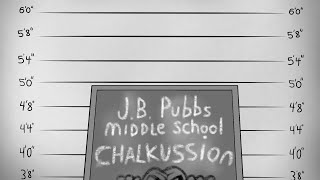 6'0" 6'0"
5'8" 5'8"
5'4" 5'4"
5'0" 5'0"
J.B. Pubbs
4'8" 4'8"
middle School
4'4" 4'4"
CHALKUSSION
4'0" 4'0"
3'8" 3'8"